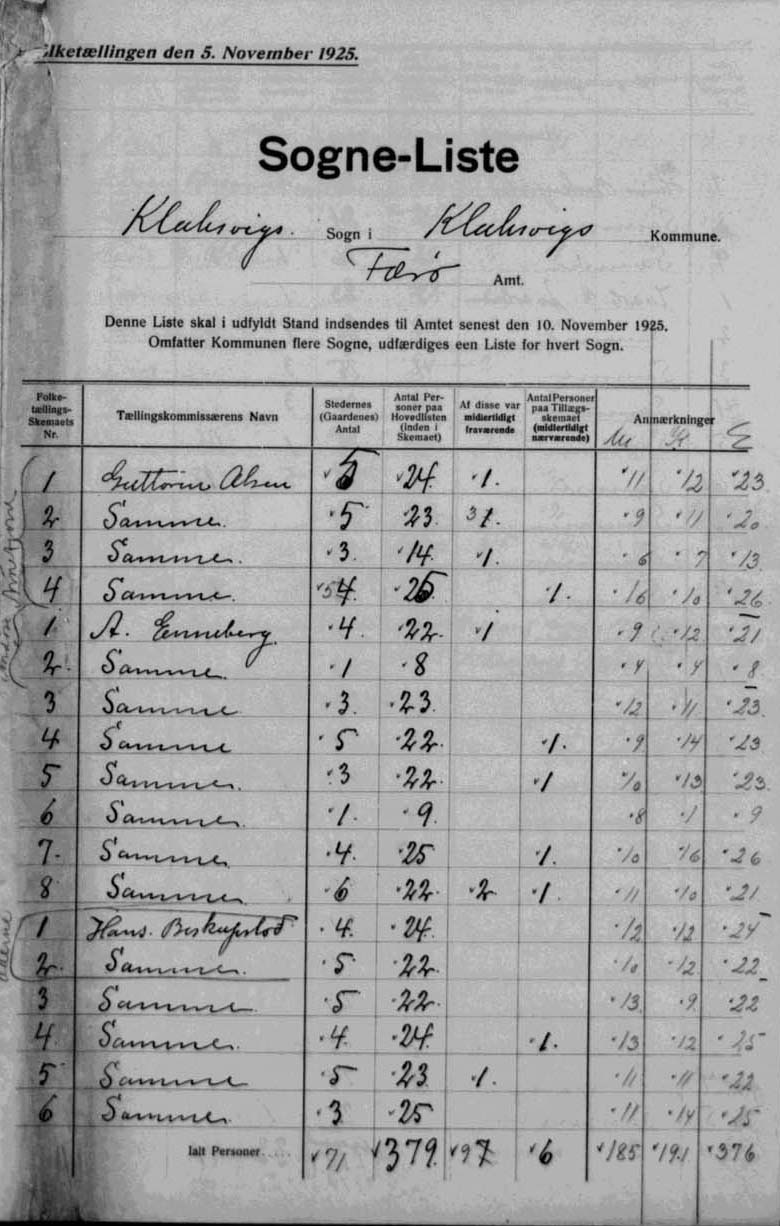 Folketællingen den 5. November 1925.
Sogne-Liste
Klaksvigs. Sogn i Klaksvigs Kommune.
Færø Amt.
Denne Liste skal i udfyldt Stand indsendes til Amtet senest den 10. November 1925.
Omfatter Kommunen flere Sogne, udfærdiges een Liste for hvert Sogn.
Folke-tællings-Skemaets Nr. Tællingskommissærens Navn Stedernes (Gaardenes) Antal Antal Personer paa Hovedlisten (inden i Skemaet) Af disse var midlertidigt fraværende Antal Personer paa Tillægs-skemaet (midlertidigt nærværende) Anmærkninger
M K
1 Guttorm Olsen 5 24. 1. 11 12 23
2 Samme. 5 23. 3 1. 9 11 20
3 Samme. 3. 14. 1. 6 7 13
4 Samme. 5 4. 25 1. 16 10 26
1 A. Enneberg. 4. 22. 1 9 12 21
2. Samme. 1 8 4 4 8
3 Samme 3. 23. 12 11 23.
4 Samme 5 22. 1. 9 14 23
5 Samme. 3 22. 1 10 13 23.
6 Samme. 1. 9. 8 1 9
7. Samme 4. 25 1. 10 16 26
8 Samme 6 22. 2 1. 11 10 21
1 Hans. Biskupstod 4. 24. 12 12 24
2. Samme. 5. 22. 10 12 22
3 Samme. 5 22. 13 9 22
4 Samme. 4. 24. 1. 13 12 25
5 Samme 5 23 1. 11 11 22
6 Samme. 3 25 11 14 25
Ialt Personer 71 379. 9 7 6 185 191 376